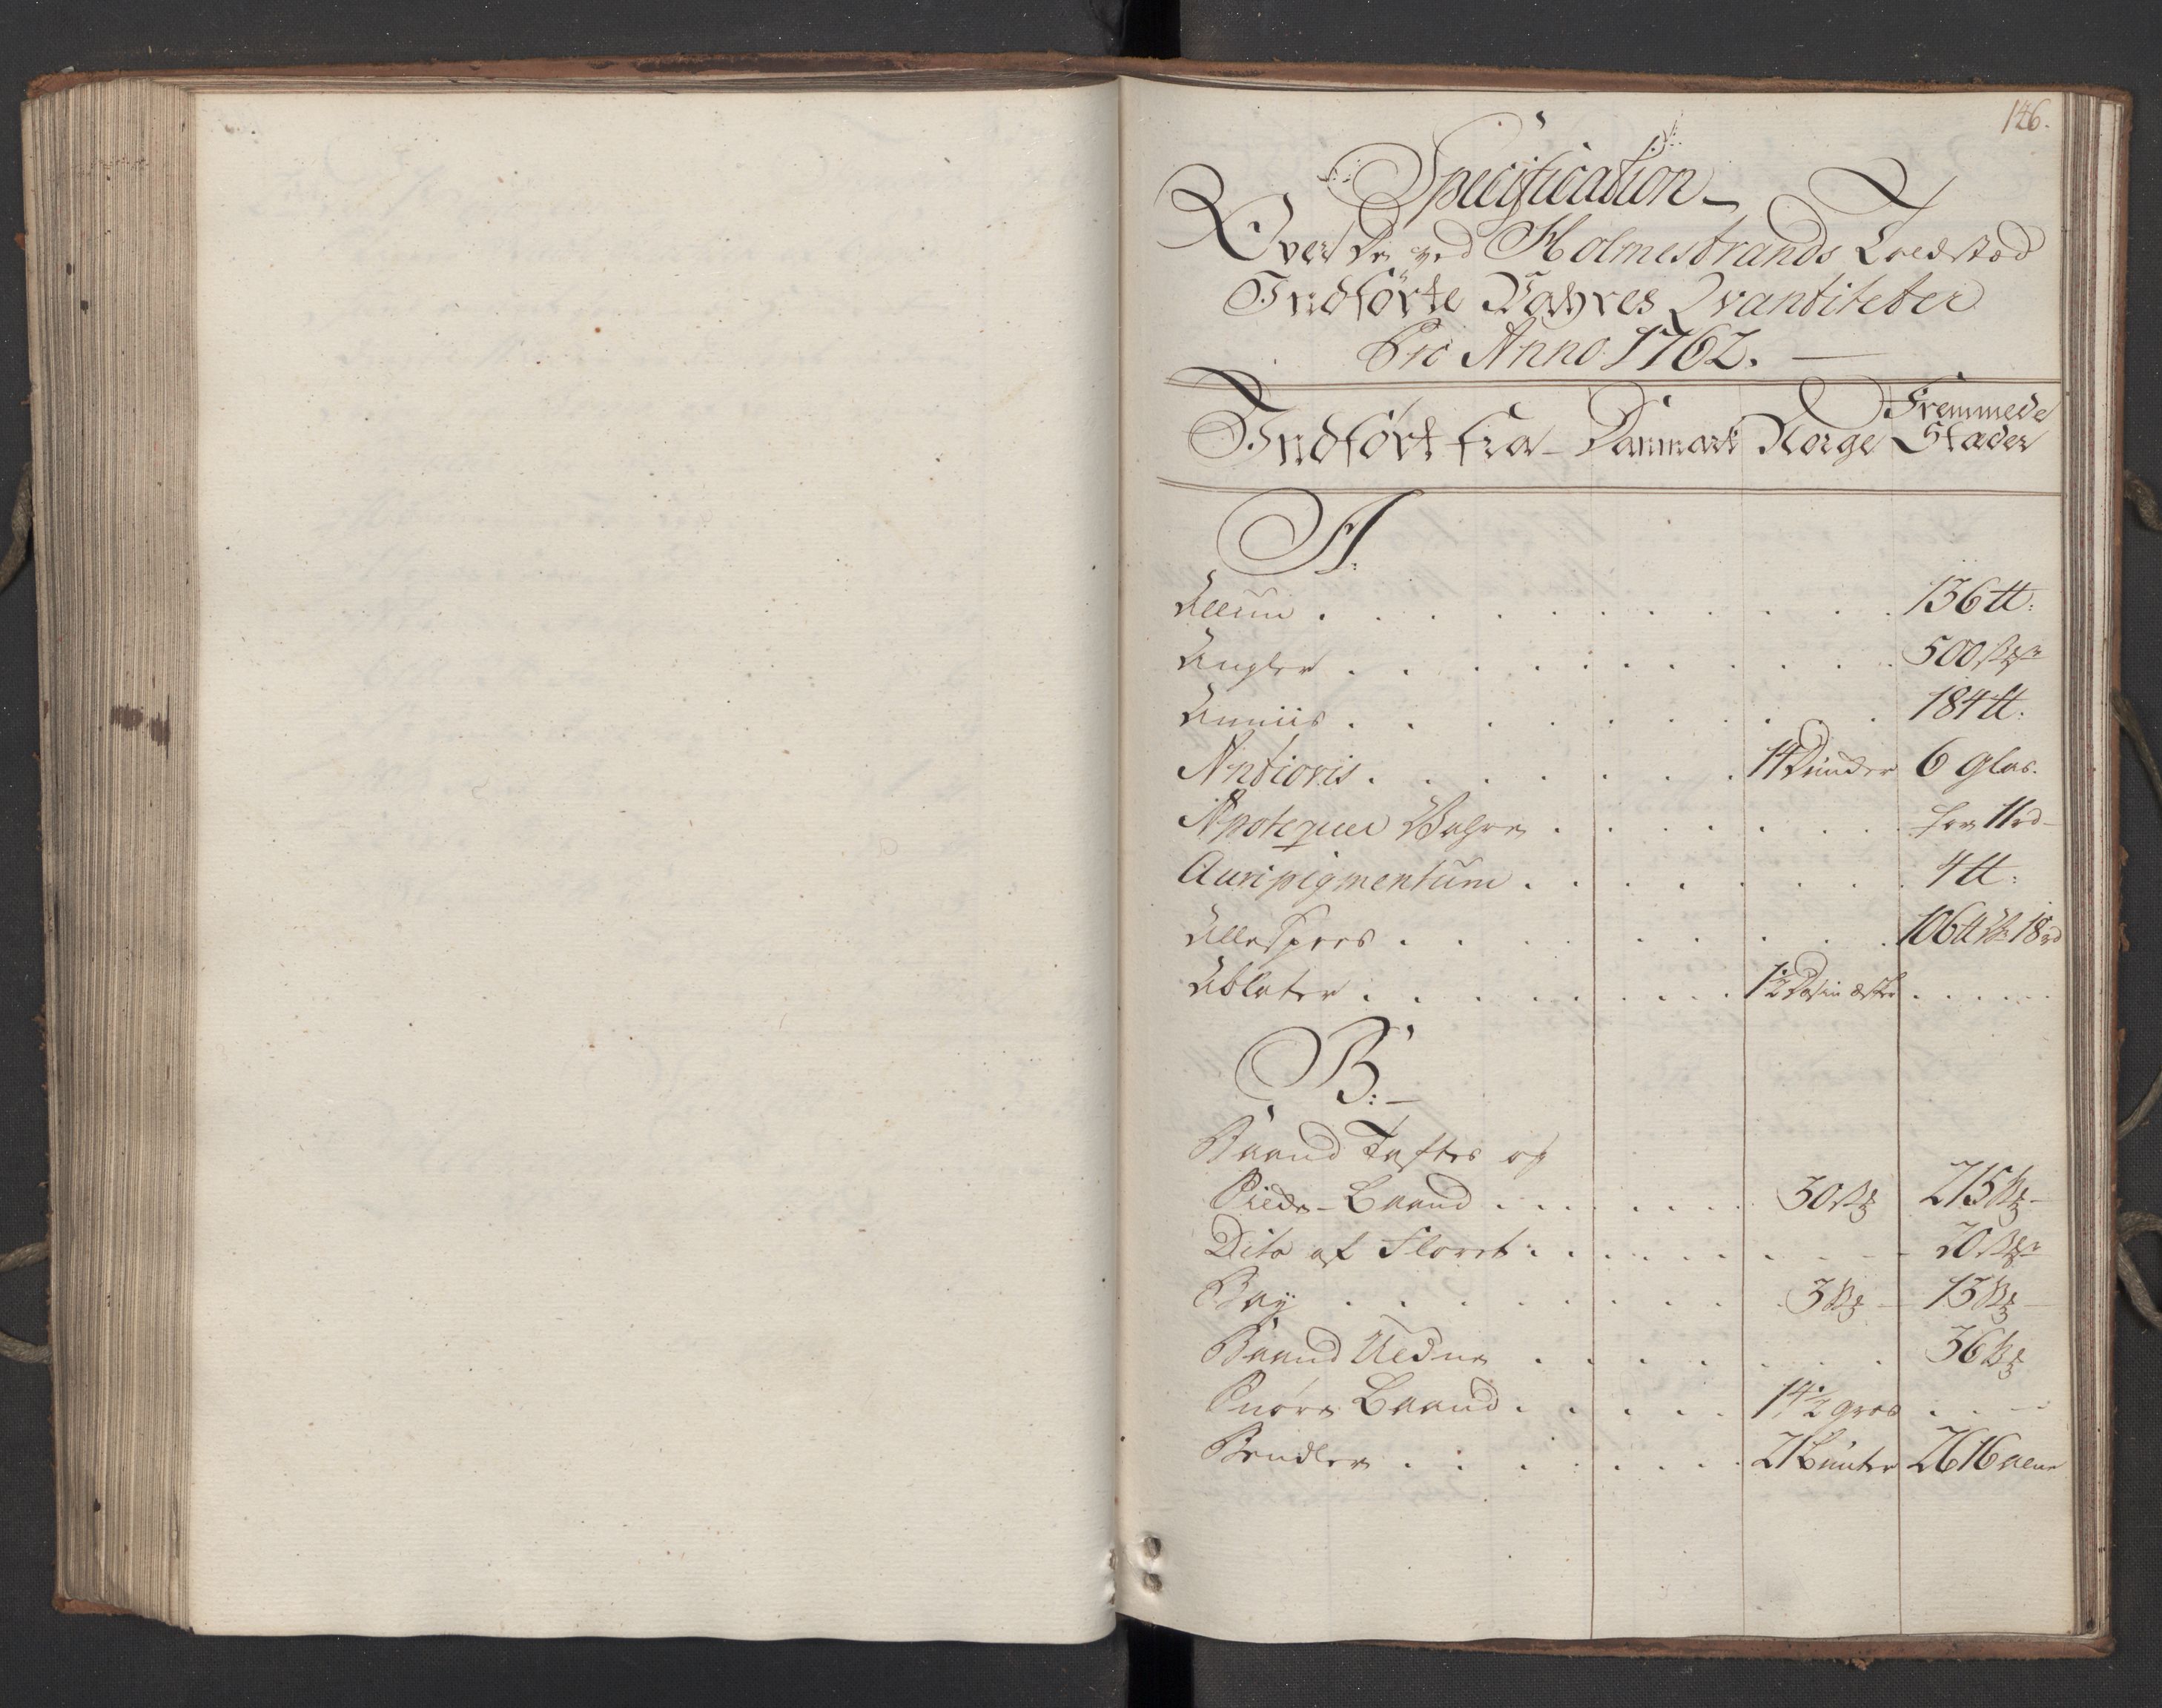 146.
Specification
Over De ved Holmestrands Toldstæd
Indførte Vahres Qvantiteter
Pro Anno 1762.
Indført fra Danmark Norge Fremmede Stæder
A:
Allun 136 ℔:
Angler 500 st
Anniis 184 ℔:
Antiovis 14 Dunder 6 Glas.
Apotequer Vahre for 11 rd
Auripigmentum 4 ℔:
Allespees 106 ℔ 18 rd
Ablater 1½ Dosin
B:
Baand Taftes og
Silke-Baand 30 st 215 st
Dito af Floret 20 st
Bay 3 st 13 st
Baand Uldne 36 st
Snøre Baand 14½ gros
Bendler 21 Bunter 2616 alne